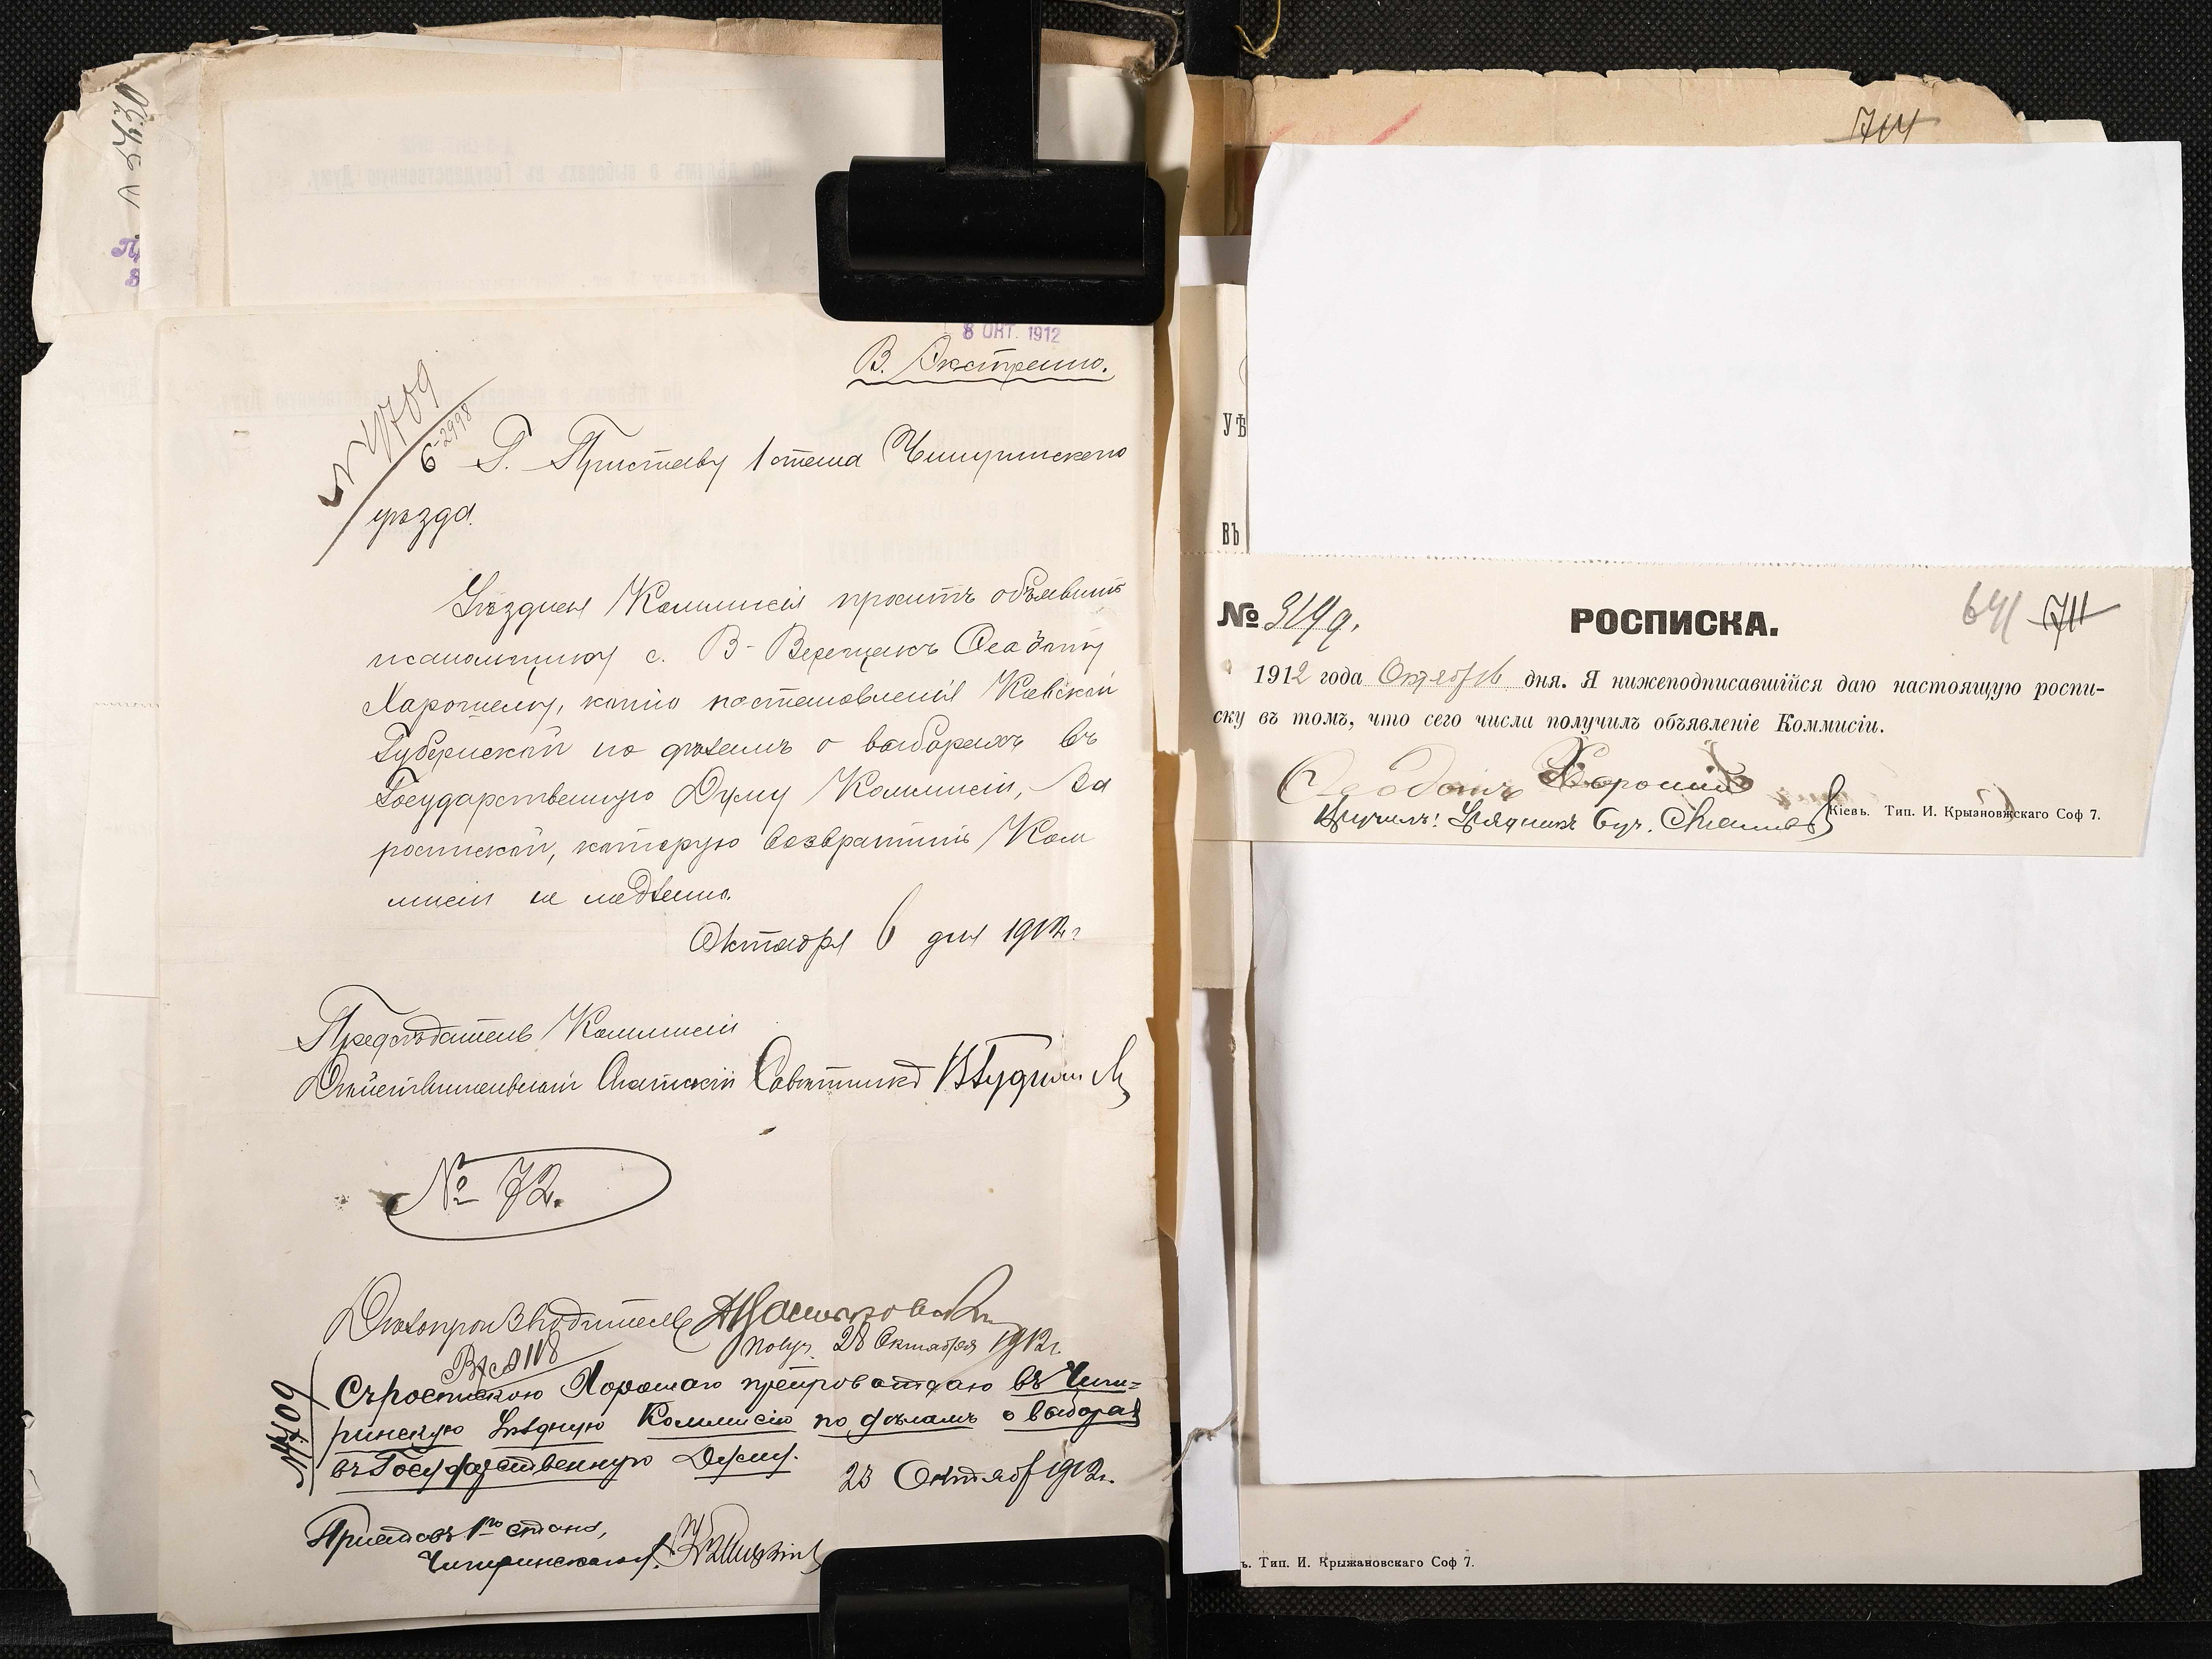 8 ОКТ. 1912
В. Экстренно.
№ 4709
6-2998
Г. Приставу 1 стана Чигиринскаго
уѣзда.
Уѣздная Коммисія проситъ объявить
псаломщику с. В-Верещакъ Феодоту
Хорошему, копію постановленія Кіевской
Губернской по дѣламъ о выборахъ въ
Государственную Думу Коммисіи, за
роспиской, которую возвратить Ком
мисіи не медленно.
Октября 6 дня 1912 г
Предсѣдатель Коммисіи
Дѣйствительный Статскій Совѣтникъ
№ 72.
Дѣлопроизводитель
Получ. 28 Октября 1912 г.
Вх № 118
№ 4709
Съ роспискою Хорошаго препровождаю въ Чиги=
ринскую Уѣздную Коммисію по дѣламъ о выборах
въ Государственную Думу.
23 Октября 1912 г.
Приставъ 1го стана,
Чигиринскаго у.
714
УѢ
ВЪ
№ 3199.
РОСПИСКА.
641 711
1912 года Октября дня. Я нижеподписавшійся даю настоящую роспи-
ску въ томъ, что сего числа получилъ объявленіе Коммисіи.
Феодотъ Хорошій
Вручилъ: Урядникъ
Кіевъ. Тип. И. Крыановжскаго Соф 7.
ъ. Тип. И. Крыжановскаго Соф 7.